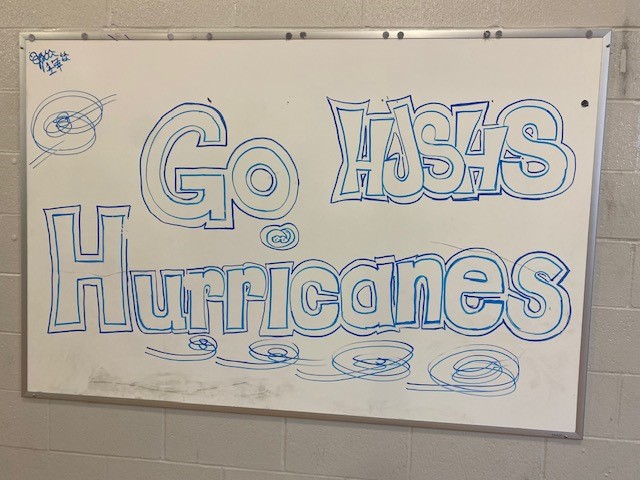 Go HJSHS
Hurricanes